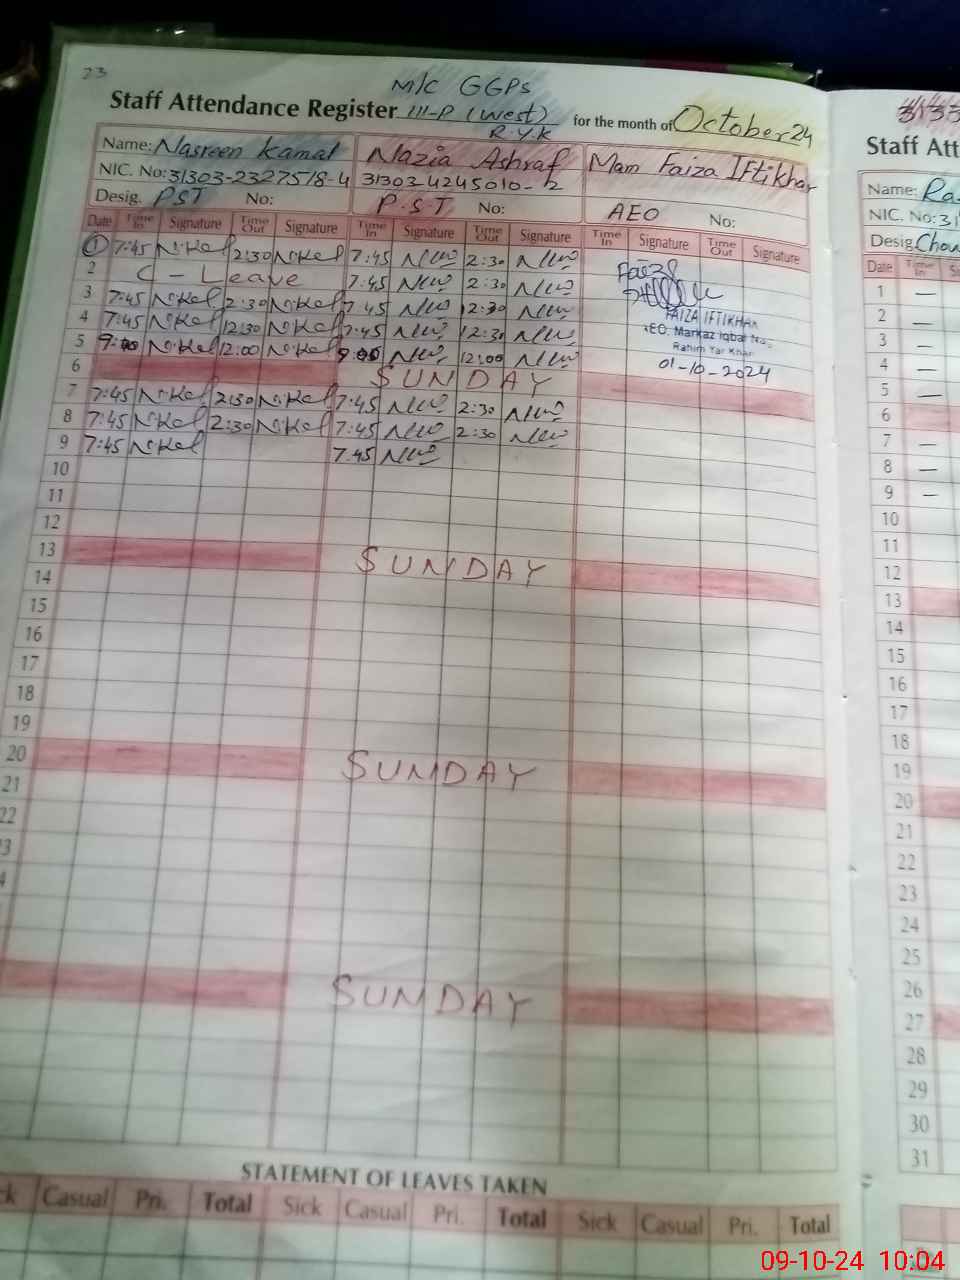 23
M/C GGPS
Staff Attendance Register III-P (West) for the month of October 24
R.Y.K
Name: Nasreen Kamal Nazia Ashraf Mam Faiza Iftikhar
NIC. No: 31303-2327518-4 31303-4245010-2
Desig. PST No: P.S.T No: AEO No:
Date Time In Signature Time Out Signature Time In Signature Time Out Signature Time In Signature Time Out Signature
1 7:45 2:30 7:45 2:30
2 C - Leave 7:45 2:30
3 7:45 2:30 7:45 2:30
4 7:45 12:30 7:45 12:30
5 9:00 12:00 9:00 12:00
6 SUNDAY
7 7:45 2:30 7:45 2:30
8 7:45 2:30 7:45 2:30
9 7:45 7:45
10
11
12
13 SUNDAY
14
15
16
17
18
19
20 SUNDAY
21
22
SUNDAY
Faiza
FAIZA IFTIKHAR
AEO. Markaz Iqbal
Rahim Yar Khan
01-10-2024
STATEMENT OF LEAVES TAKEN
Casual Pri. Total Sick Casual Pri. Total Sick Casual Pri. Total
Staff Att
Name: Ra
NIC. No: 31
Desig.
Date Time In
1 —
2 —
3 —
4 —
5 —
6
7 —
8 —
9 —
10
11
12
13
14
15
16
17
18
19
20
21
22
23
24
25
26
27
28
29
30
31
09-10-24 10:04